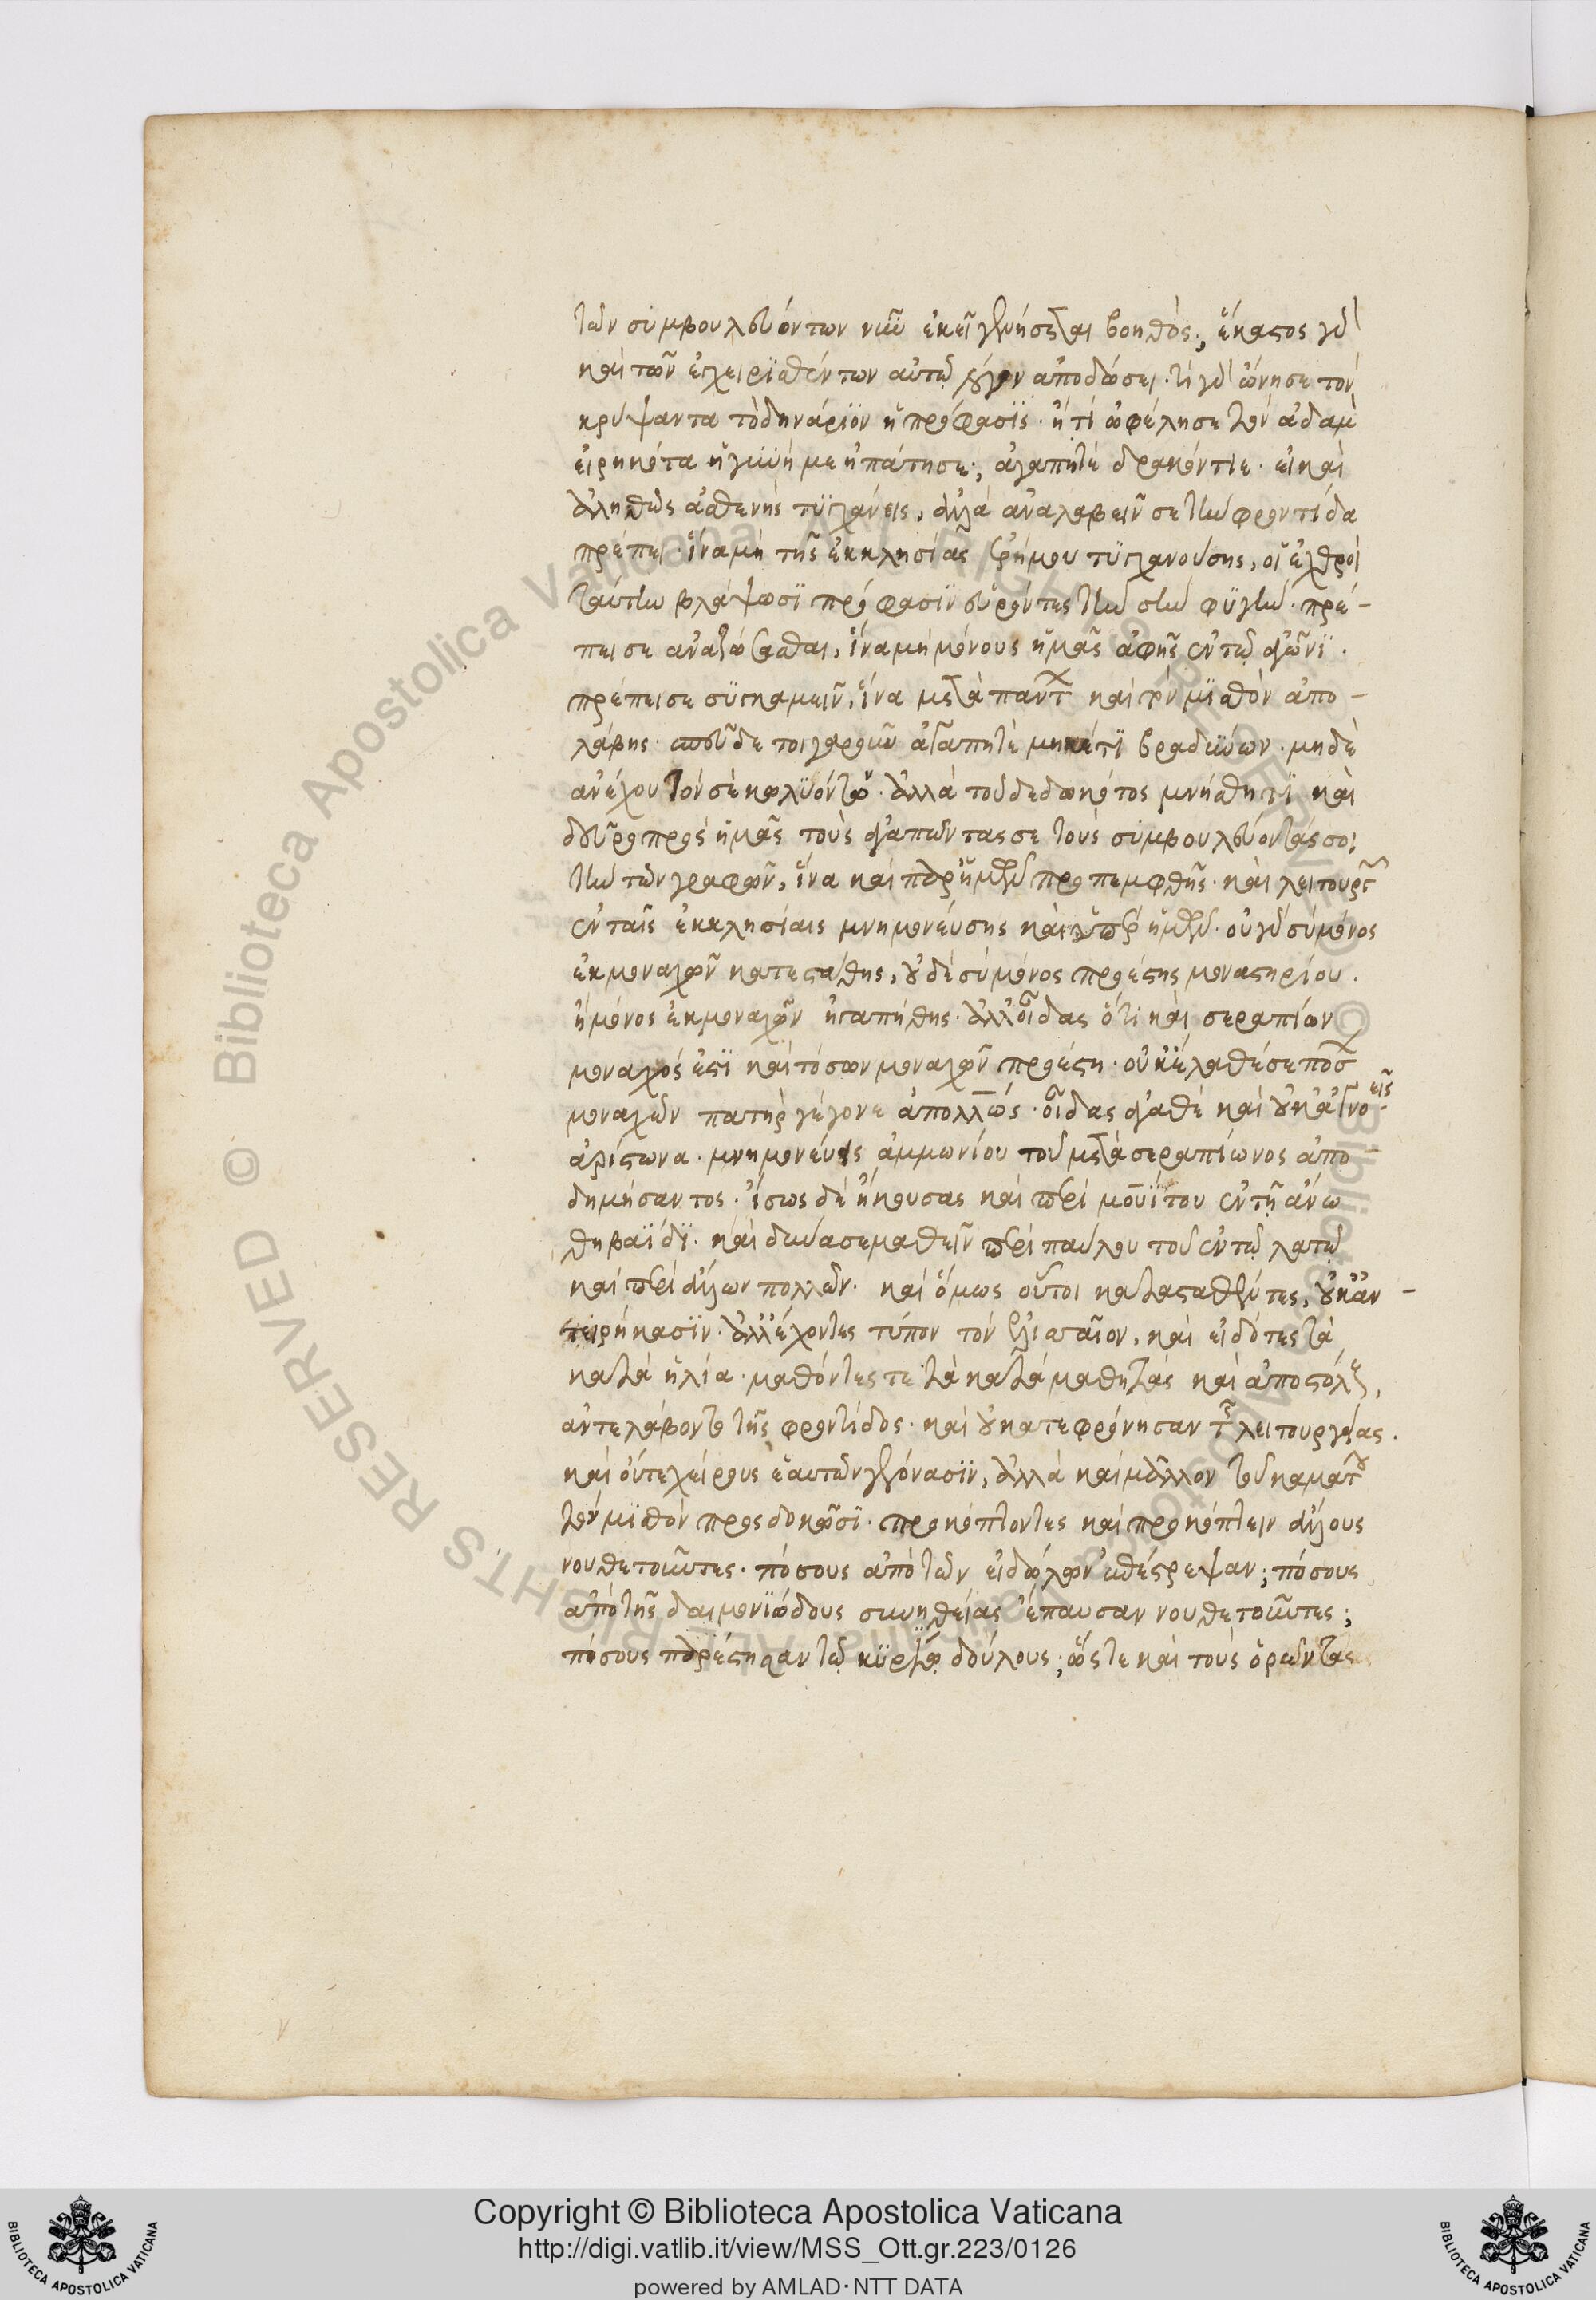 τῶν συμβουλευόντων νῦν ἐκεῖ γενήσεται βοηθός; ἕκαστος γὰρ
καὶ τῶν ἐγχειρισθέντων αὐτῷ λόγον ἀποδώσει. τί γὰρ ὤνησε τὸν
κρύψαντα τὸ δηνάριον ἡ πρόφασις. ἢ τί ὠφέλησε τὸν ἀδὰμ
εἰρηκότα ἡ γυνή με ἠπάτησε; ἀγαπητὲ δρακόντιε. εἰ καὶ
ἀληθῶς ἀσθενὴς τυγχάνεις, ἀλλὰ ἀναλαβεῖν σε τὴν φροντίδα
πρέπει. ἵνα μὴ τῆς ἐκκλησίας ἐρήμου τυγχανούσης, οἱ ἐχθροὶ
ταύτην βλάψωσι πρόφασιν εὑρόντες τὴν σὴν φυγήν. πρέ-
πει σε ἀναζώσασθαι, ἵνα μὴ μόνους ἡμᾶς ἀφῇς ἐν τῷ ἀγῶνι.
πρέπει σε συγκαμεῖν, ἵνα μετὰ πάντων καὶ τὸν μισθὸν ἀπο-
λάβῃς. σπεῦδε τοιγαροῦν ἀγαπητὲ μηκέτι βραδύνων. μηδὲ
ἀνέχου τῶν σὲ κωλυόντων. ἀλλὰ τοῦ δεδωκότος μνήσθητι καὶ
δεῦρο πρὸς ἡμᾶς τοὺς ἀγαπῶντας σε τοὺς συμβουλεύοντάς σοι
τὴν τῶν γραφῶν, ἵνα καὶ παρ' ἡμῶν προπεμφθῇς. καὶ λειτουργῶν
ἐν ταῖς ἐκκλησίαις μνημονεύσῃς καὶ ὑπὲρ ἡμῶν. οὐ γὰρ σὺ μόνος
ἐκ μοναχῶν κατεστάθης, οὐδὲ σὺ μόνος προέστης μοναστηρίου.
ἢ μόνος ἐκ μοναχῶν ἠγαπήθης. ἀλλ' οἶδας ὅτι καὶ σεραπίων
μοναχός ἐστι καὶ τόσων μοναχῶν προέστη. οὐκ ἔλαθέ σε πόσων
μοναχῶν πατὴρ γέγονε ἀπολλῶς. οἶδας ἀγαθὲ καὶ οὐκ ἀγνοεῖς
ἀρίστωνα. μνημονεύεις ἀμμωνίου τοῦ μετὰ σεραπίωνος ἀπο-
δημήσαντος. ἴσως δὲ ἤκουσας καὶ περὶ μουΐτου ἐν τῇ ἄνω
θηβαΐδι. καὶ δύνασαι μαθεῖν περὶ παύλου τοῦ ἐν τῷ λατῷ
καὶ περὶ ἄλλων πολλῶν. καὶ ὅμως οὗτοι κατασταθέντες, οὐκ ἀν-
τειρήκασιν. ἀλλ' ἔχοντες τύπον τὸν ἐλισσαῖον, καὶ εἰδότες τὰ
κατὰ ἡλία. μαθόντες τε τὰ κατὰ μαθητὰς καὶ ἀποστόλους,
ἀντελάβοντο τῆς φροντίδος. καὶ οὐ κατεφρόνησαν τῆς λειτουργίας.
καὶ οὔτε χείρους ἑαυτῶν γεγόνασιν, ἀλλὰ καὶ μᾶλλον τοῦ καμάτου
τὸν μισθὸν προσδοκῶσι. προκόπτοντες καὶ προκόπτειν ἄλλους
νουθετοῦντες. πόσους ἀπὸ τῶν εἰδώλων ἀπέστρεψαν; πόσους
ἀπὸ τῆς δαιμονιώδους συνηθείας ἔπαυσαν νουθετοῦντες;
πόσους παρέστησαν τῷ κυρίῳ δούλους; ὥστε καὶ τοὺς ὁρῶντας
Copyright © Biblioteca Apostolica Vaticana
http://digi.vatlib.it/view/MSS_Ott.gr.223/0126
powered by AMLAD·NTT DATA